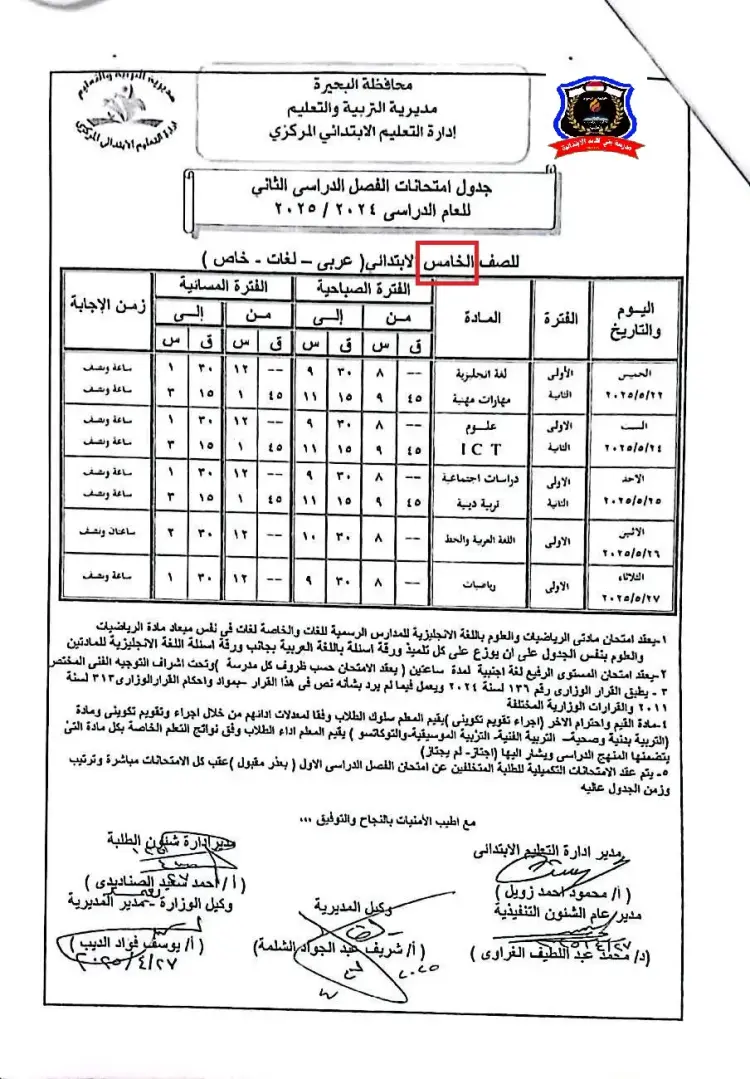 مديرية التربية والتعليم
إدارة التعليم الابتدائى المركزى
محافظة البحيرة
مديرية التربية والتعليم
إدارة التعليم الابتدائي المركزي
جدول امتحانات الفصل الدراسى الثاني
للعام الدراسى ٢٠٢٤ / ٢٠٢٥
للصف الخامس الابتدائي( عربى – لغات - خاص )
اليوم والتاريخ الفترة المادة الفترة الصباحية الفترة المسائية زمن الإجابة
من إلى من إلى
ق س ق س ق س ق س
الخميس الأولى لغة انجليزية -- ٨ ٣٠ ٩ -- ١٢ ٣٠ ١ ساعة ونصف
٢٠٢٥/٥/٢٢ الثانية مهارات مهنية ٤٥ ٩ ١٥ ١١ ٤٥ ١ ١٥ ٣ ساعة ونصف
السبت الاولى علوم -- ٨ ٣٠ ٩ -- ١٢ ٣٠ ١ ساعة ونصف
٢٠٢٥/٥/٢٤ الثانية ICT ٤٥ ٩ ١٥ ١١ ٤٥ ١ ١٥ ٣ ساعة ونصف
الاحد الاولى دراسات اجتماعية -- ٨ ٣٠ ٩ -- ١٢ ٣٠ ١ ساعة ونصف
٢٠٢٥/٥/٢٥ الثانية تربية دينية ٤٥ ٩ ١٥ ١١ ٤٥ ١ ١٥ ٣ ساعة ونصف
الاثنين ٢٠٢٥/٥/٢٦ الاولى اللغة العربية والخط -- ٨ ٣٠ ١٠ -- ١٢ ٣٠ ٢ ساعتان ونصف
الثلاثاء ٢٠٢٥/٥/٢٧ الاولى رياضيات -- ٨ ٣٠ ٩ -- ١٢ ٣٠ ١ ساعة ونصف
١-يعقد امتحان مادتى الرياضيات والعلوم باللغة الانجليزية للمدارس الرسمية للغات والخاصة لغات فى نفس ميعاد مادة الرياضيات
والعلوم بنفس الجدول على ان يوزع على كل تلميذ ورقة اسئلة باللغة العربية بجانب ورقة اسئلة اللغة الانجليزية للمادتين
٢-يعقد امتحان المستوى الرفيع لغة اجنبية لمدة ساعتين ( يعقد الامتحان حسب ظروف كل مدرسة )وتحت اشراف التوجيه الفنى المختص
٣ - يطبق القرار الوزارى رقم ١٣٦ لسنة ٢٠٢٤ ويعمل فيما لم يرد بشأنه نص فى هذا القرار -بمواد واحكام القرارالوزارى٣١٣ لسنة
٢٠١١ والقرارات الوزارية المختلفة
٤-مادة القيم واحترام الاخر (اجراء تقويم تكوينى )يقيم المعلم سلوك الطلاب وفقا لمعدلات ادائهم من خلال اجراء وتقويم تكوينى ومادة
(التربية بدنية وصحية– التربية الفنية- التربية الموسيقية-والتوكاتسو ) يقيم المعلم اداء الطلاب وفق نواتج التعلم الخاصة بكل مادة التى
يتضمنها المنهج الدراسى ويشار اليها (اجتاز- لم يجتاز)
٥-يتم عقد الامتحانات التكميلية للطلبة المتخلفين عن امتحان الفصل الدراسى الاول ( بعذر مقبول )عقب كل الامتحانات مباشرة وترتيب
وزمن الجدول عاليه
مع اطيب الأمنيات بالنجاح والتوفيق ،،،
مدير ادارة التعليم الابتدائى
مدير ادارة شئون الطلبة
( أ/ محمود احمد زويل )
( أ/ أحمد سعيد الصناديدى )
مدير عام الشئون التنفيذية
وكيل المديرية
وكيل الوزارة - مدير المديرية
(د/ محمد عبد اللطيف الغراوى )
( أ/ شريف عبد الجواد الشلمة)
( أ/ يوسف فؤاد الديب )
٢٠٢٥/٤/٢٧